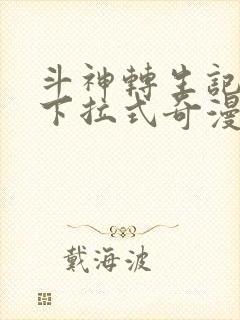 斗神轉生記
下拉式奇漫
戴海波